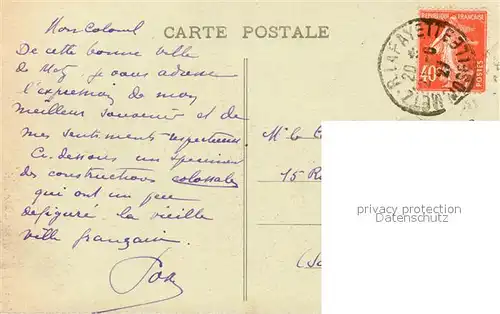 CARTE POSTALE
Mon Colonel
De cette bonne ville
de Metz je vous adresse
l'expression de mon
meilleur souvenir et de
mes sentiments respectueux
Ci-dessous un specimen
des constructions colossales
qui ont un peu
défiguré la vieille
ville française.
REPUBLIQUE FRANÇAISE
40c
POSTES
METZ-R. LAFAYETTE
MOSELLE
20-5
27
M^r le C
15 R
privacy protection